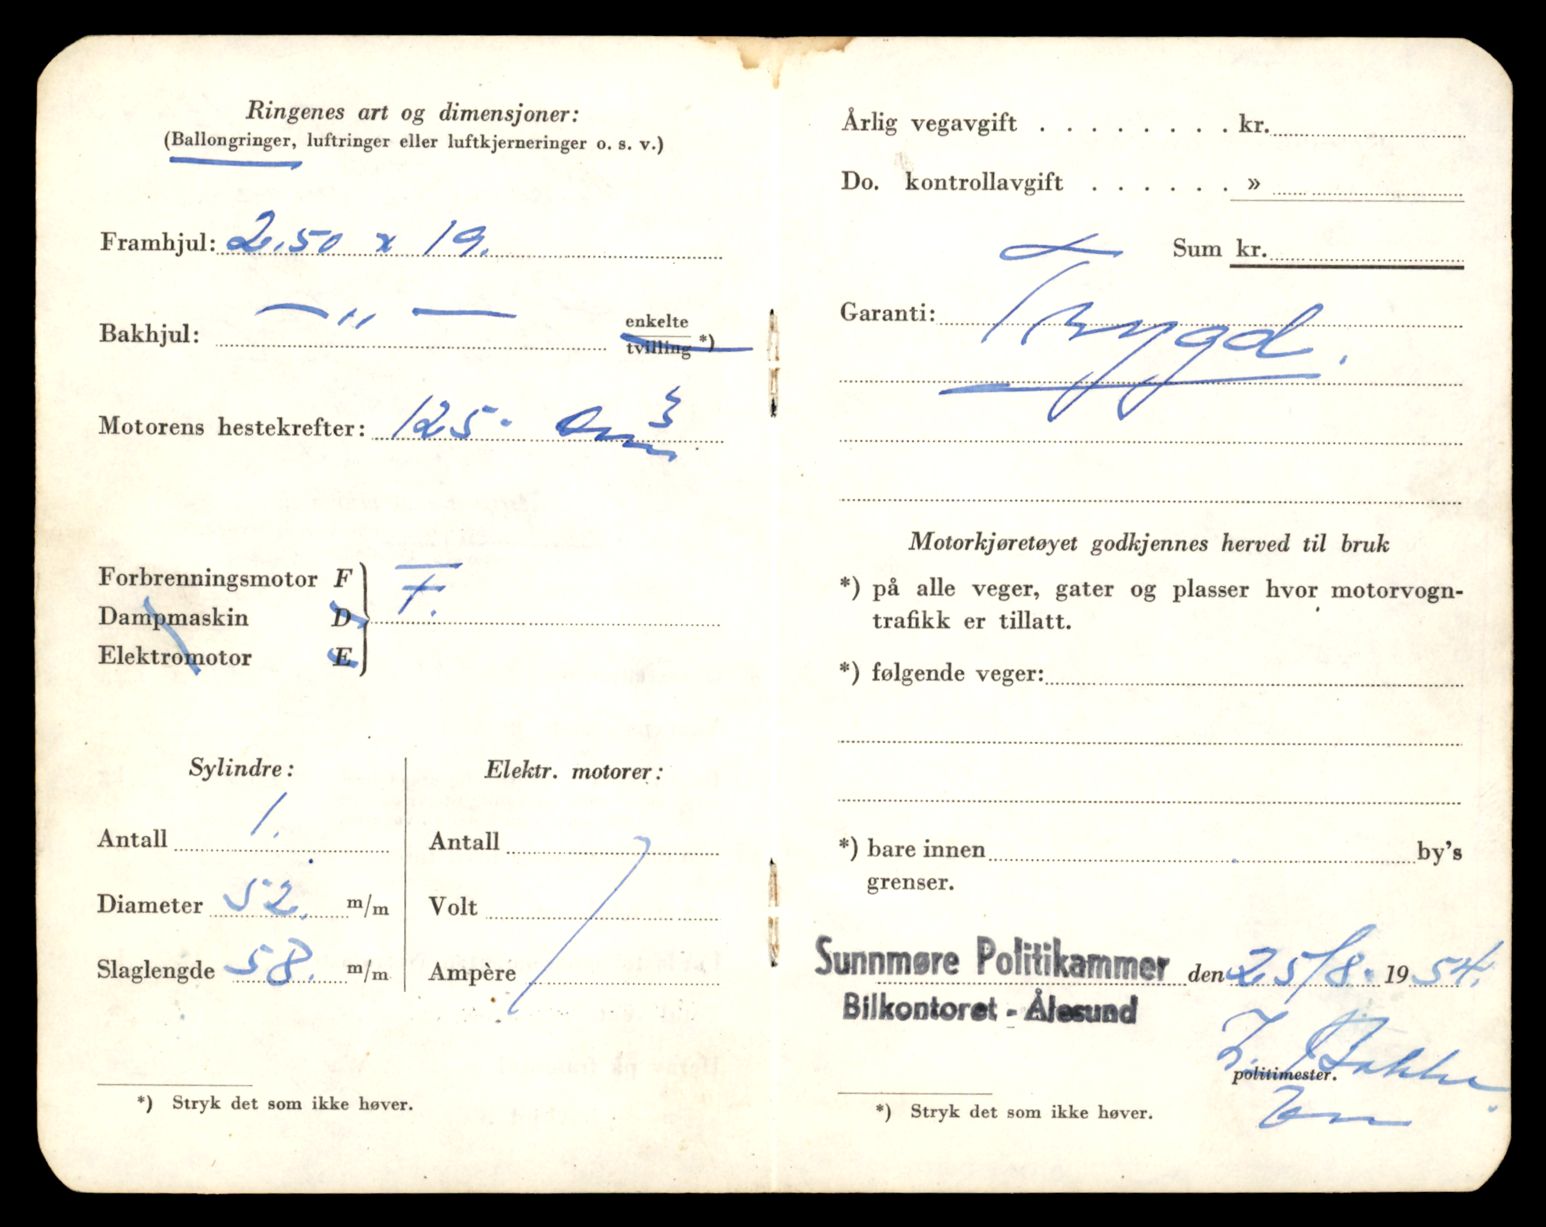 Ringenes art og dimensjoner:
(Ballongringer, luftringer eller luftkjerneringer o. s. v.)
Framhjul: 2.50 x 19.
Bakhjul: — ,, — enkelte
tvilling *)
Motorens hestekrefter: 125. cm3
Forbrenningsmotor F
Dampmaskin D
Elektromotor E
F.
Sylindre:
Antall 1.
Diameter 52. m/m
Slaglengde 58. m/m
Elektr. motorer:
Antall
Volt
Ampère
*) Stryk det som ikke høver.
Årlig vegavgift . . . . . . . . kr.
Do. kontrollavgift . . . . . . »
Sum kr.
Garanti: Trygd.
Motorkjøretøyet godkjennes herved til bruk
*) på alle veger, gater og plasser hvor motorvogn-
trafikk er tillatt.
*) følgende veger:
*) bare innen by's
grenser.
Sunnmøre Politikammer den 25/8. 1954.
Bilkontoret - Ålesund
politimester.
*) Stryk det som ikke høver.